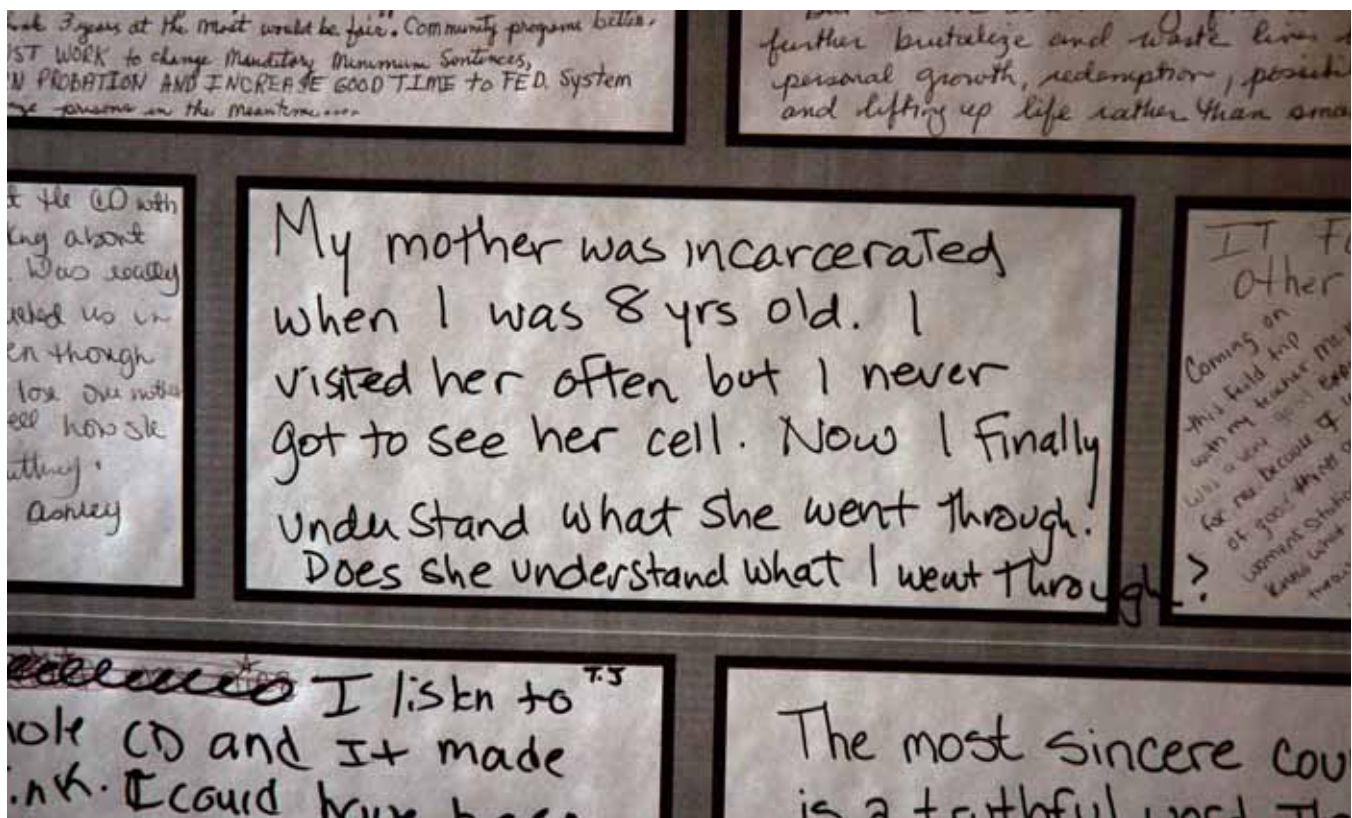 3 years at the most would be fair. Community programs better.
WORK to change Manditory Minimum Sentences,
PROBATION AND INCREASE GOOD TIME to FED. System
prisons in the meantime....
further brutalize and waste lives
personal growth, redemption,
and lifting up life rather than
the CD with
about
Was really
us in
though
lose our
how she
Ashley
My mother was incarcerated
when I was 8 yrs old. I
visited her often but I never
got to see her cell. Now I finally
understand what she went through!
Does she understand what I went through?
IT
Other
Coming on
this field trip
with my teacher Mr.
was a very good
for me because of
of good things
women's
T.J
I listen to
CD and It made
I could have been
The most sincere
is a truthful word.